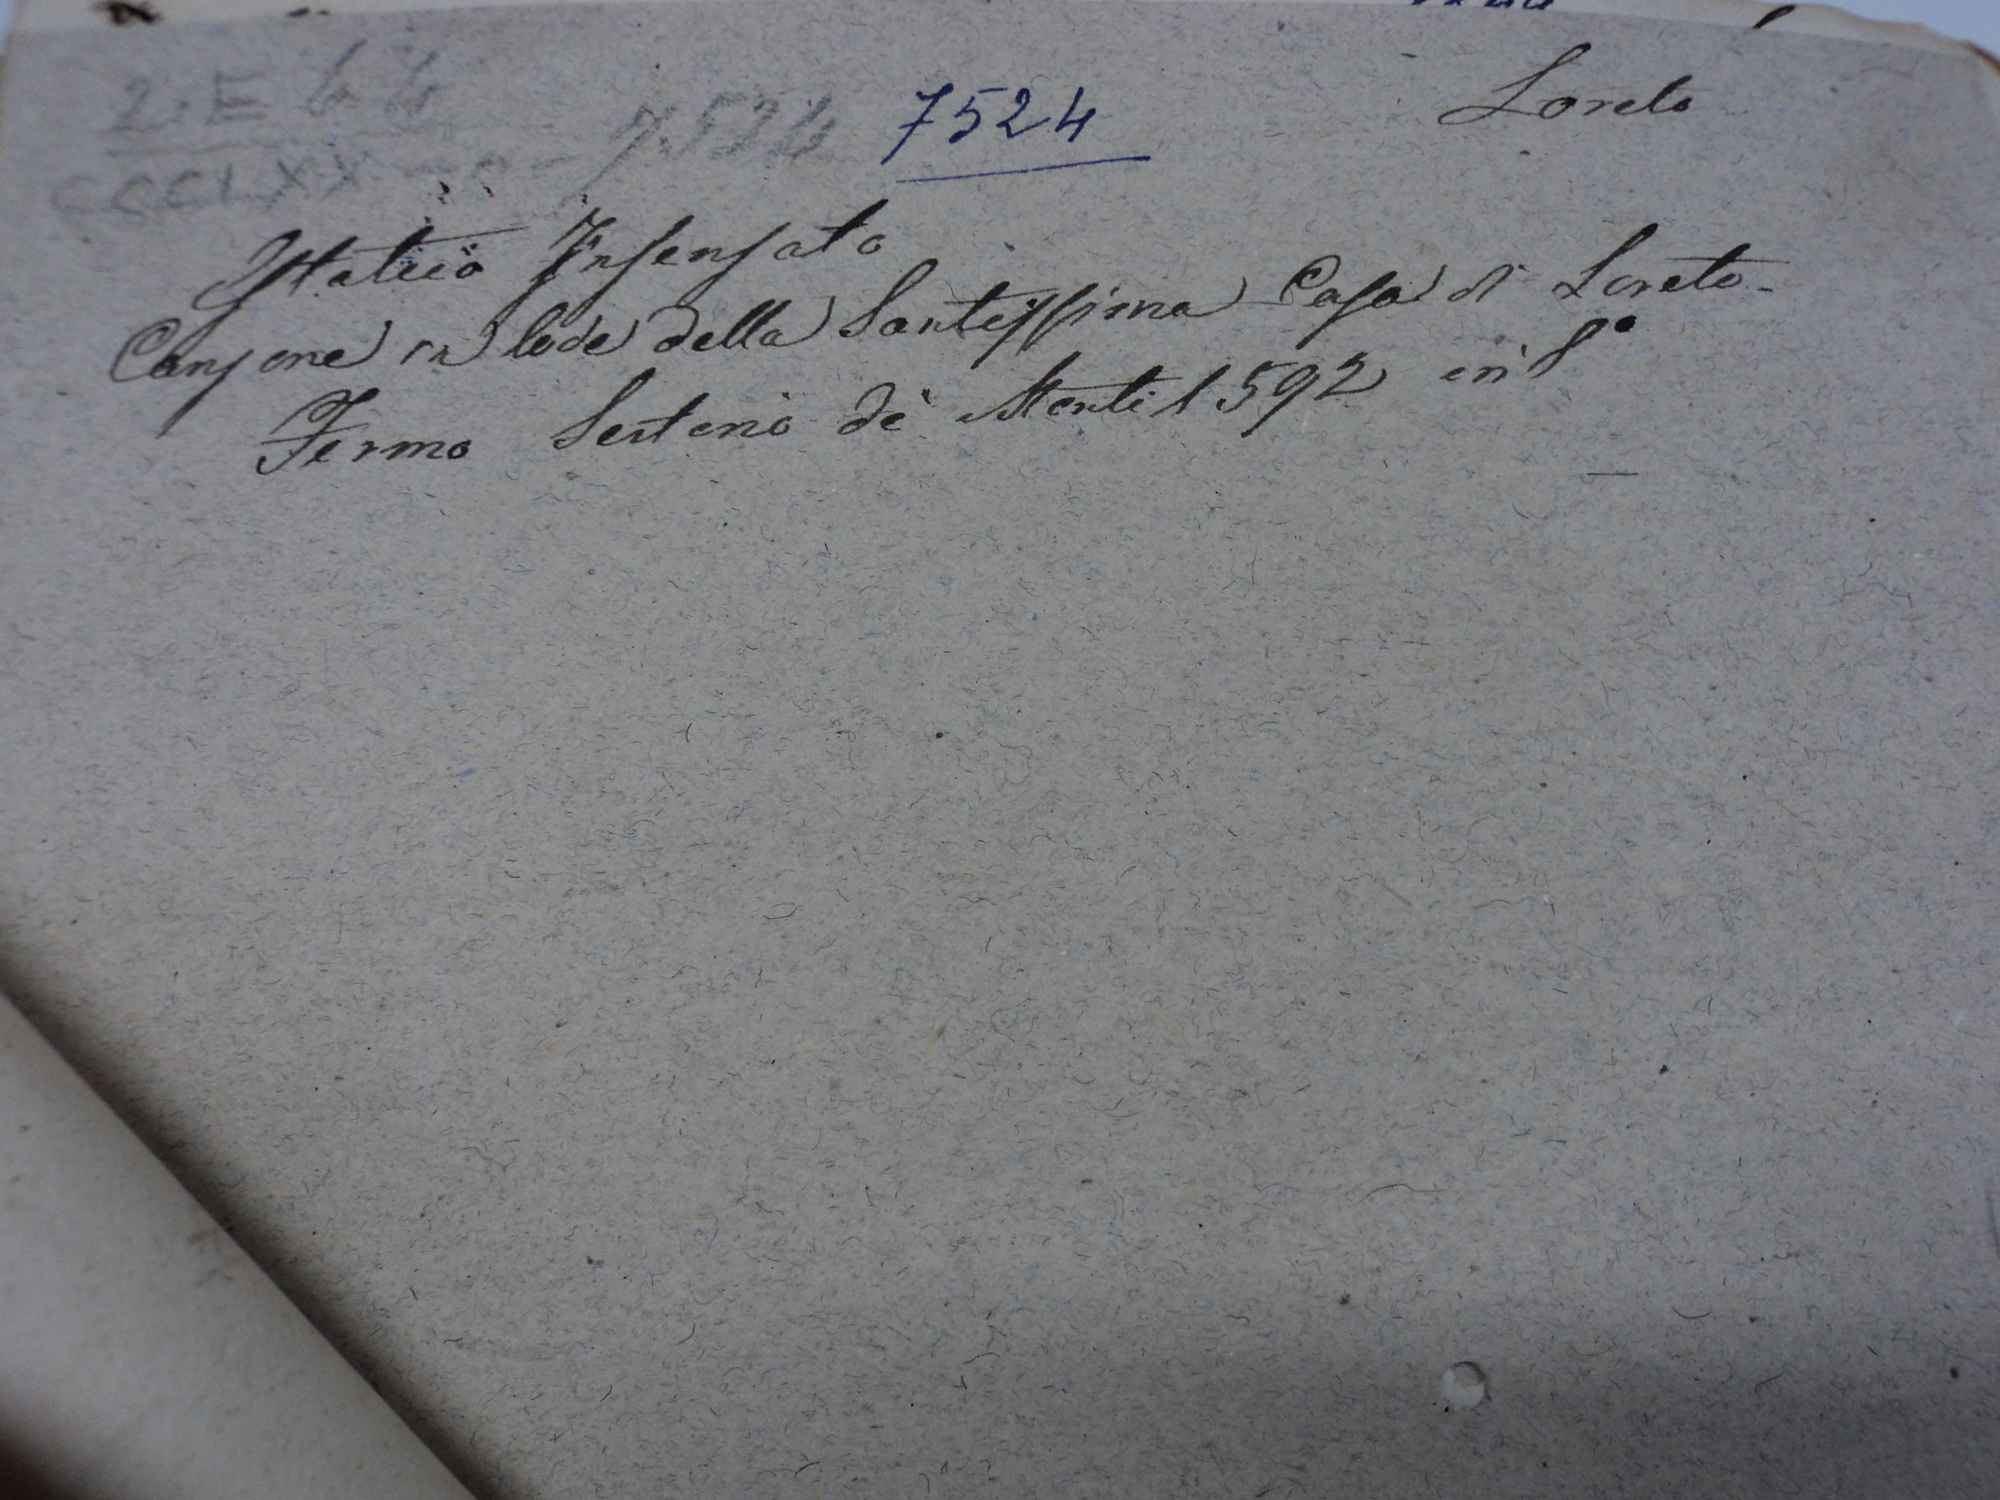 2. E 44
CCCLXX 7524 7524 Loreto
Insensato
Canzone in lode della Santissima Casa di Loreto-
Fermo Sertorio de Monti 1592 in 8°